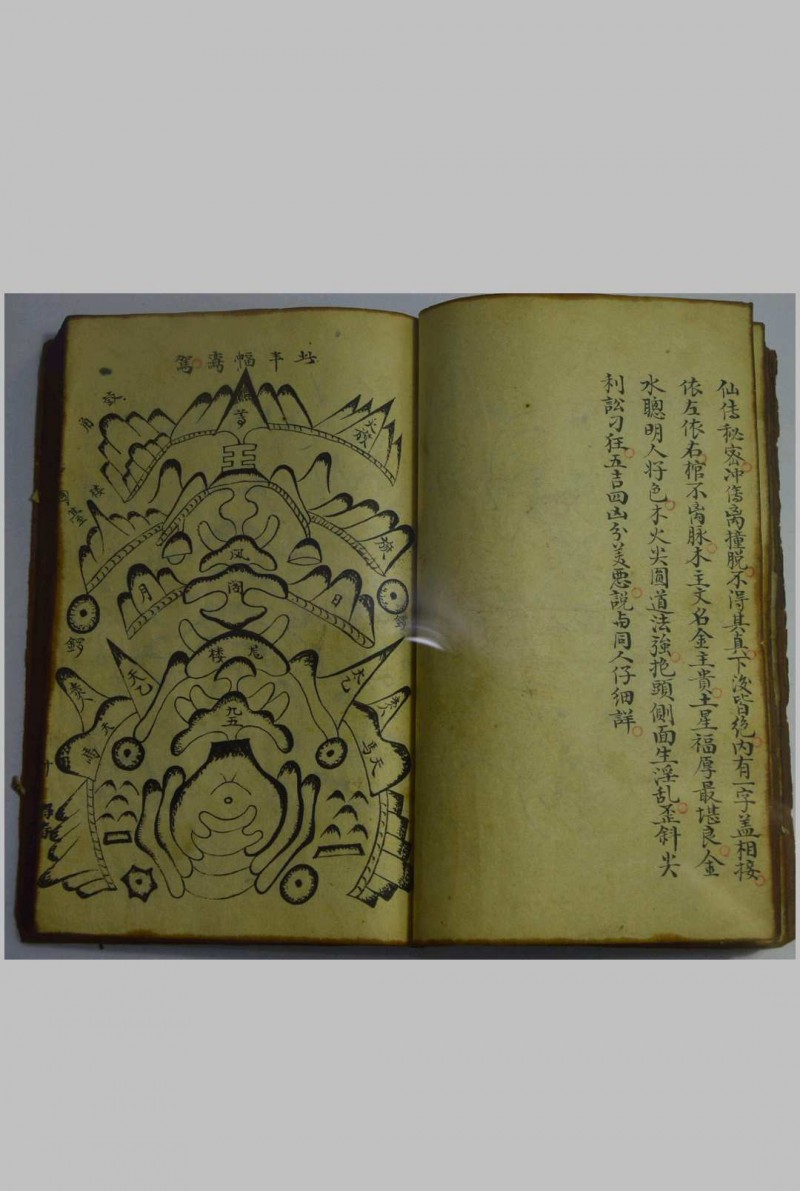 仙傳秘密冲傷离撞脱不得其真下後皆絶内有一字盖相接
依左依右棺不离脉木主文名金主貴土星福厚最堪良金
水聰明人好色木火尖圓道法強抱頭側面生淫乱歪斜尖
利訟刁狂五吉四凶分美惡說与同人仔細詳
天旗
王
旗
鳳
閣
日
月
鑼
龙
楼
太乙
天乙
天馬
九五